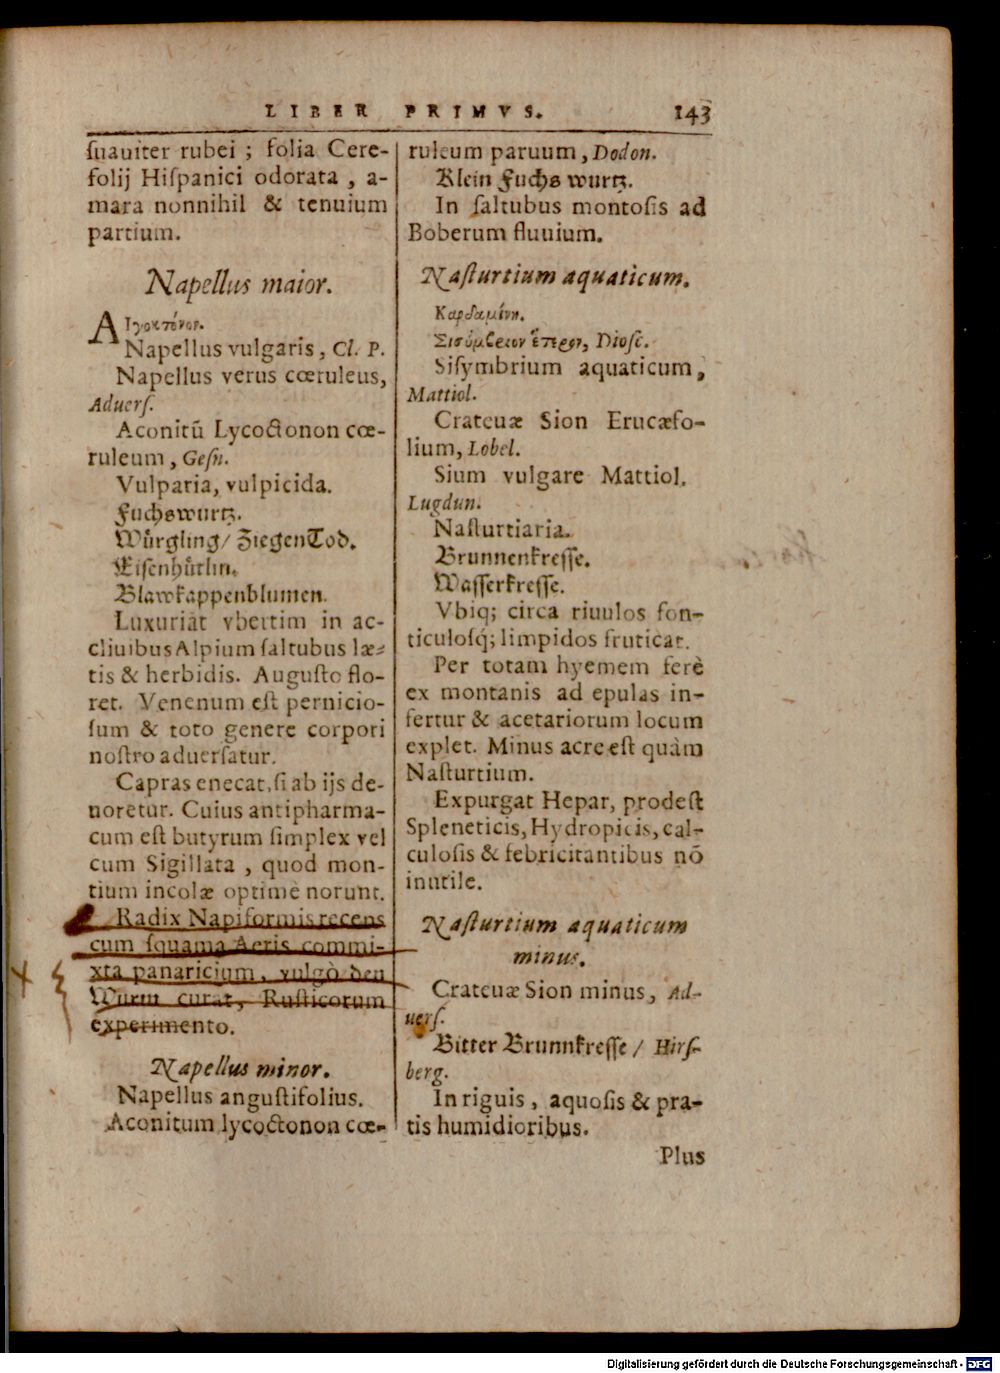 LIBER PRIMVS. 143
ſuauiter rubei ; folia Cere-
folij Hiſpanici odorata , a-
mara nonnihil & tenuium
partium.
Napellus maior.
ΑΙγοκτόνον.
Napellus vulgaris, Cl. P.
Napellus verus cœruleus,
Aduerſ.
Aconitū Lycoctonon cœ-
ruleum , Geſn.
Vulparia, vulpicida.
Fuchswurtz.
Wuͤrgling/ ZiegenTod.
Eiſenhuͤtlin.
Blawkappenblumen.
Luxuriāt vbertim in ac-
cliuibus Alpium ſaltubus læ-
tis & herbidis. Auguſto flo-
ret. Venenum eſt pernicio-
ſum & toto genere corpori
noſtro aduerſatur.
Capras enecat, ſi ab ijs de-
uoretur. Cuius antipharma-
cum eſt butyrum ſimplex vel
cum Sigillata , quod mon-
tium incolæ optimè norunt.
Radix Napiformis recens
cum ſquama Aeris commi-
xta panaricium, vulgò den
Wurm curat, Ruſticorum
experimento.
Napellus minor.
Napellus anguſtifolius.
Aconitum lycoctonon cœ-
ruleum paruum , Dodon.
Klein Fuchs wurtz.
In ſaltubus montoſis ad
Boberum fluuium.
Naſturtium aquaticum.
Καρδαμίνη.
Σισύμβριον ἕτερον, Dioſc.
Siſymbrium aquaticum,
Mattiol.
Crateuæ Sion Erucæfo-
lium, Lobel.
Sium vulgare Mattiol.
Lugdun.
Naſturtiaria.
Brunnenkreſſe.
Waſſerkreſſe.
Vbiq; circa riuulos fon-
ticuloſq; limpidos fruticat.
Per totam hyemem ferè
ex montanis ad epulas in-
fertur & acetariorum locum
explet. Minus acre eſt quàm
Naſturtium.
Expurgat Hepar, prodeſt
Spleneticis, Hydropicis, cal-
culoſis & febricitantibus nō
inutile.
Naſturtium aquaticum
minus.
Crateuæ Sion minus, Ad-
uerſ.
Bitter Brunnkreſſe / Hirſ-
berg.
In riguis , aquoſis & pra-
tis humidioribus.
Plus
Digitalisierung gefördert durch die Deutsche Forschungsgemeinschaft - DFG